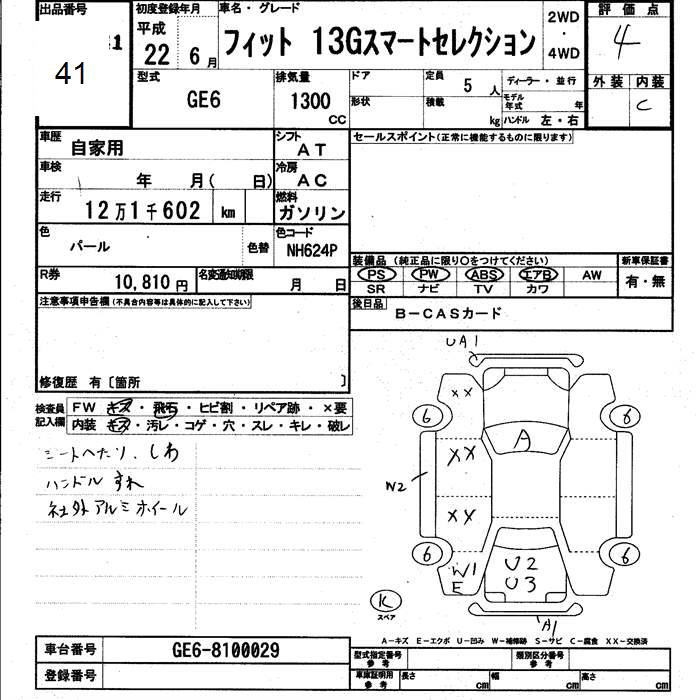 出品番号 1 初度登録年月 車名・グレード 2WD・4WD 評価点
41 平成 22 6月 フィット 13Gスマートセレクション 4
型式 排気量 ドア 定員 5人 ディーラー・並行 外装 内装
GE6 1300 CC 形状 積載 kg モデル年式 年 C
ハンドル 左・右
車歴 自家用 シフト AT セールスポイント(正常に機能するものに限ります)
車検 年 月( 日) 冷房 AC
走行 12万1千602 km 燃料 ガソリン
色 パール 色替 色コード NH624P
装備品 (純正品に限り○をつけてください) 新車保証書
PS PW ABS エアB AW 有・無
SR ナビ TV カワ
R券 10,810円 名変通知期限 月 日
後日品 B-CASカード
注意事項申告欄(不具合内容等は具体的に記入して下さい)
修復歴 有〔箇所 〕
検査員記入欄 FW キズ・飛石・ヒビ割・リペア跡・×要
内装 キズ・汚レ・コゲ・穴・スレ・キレ・破レ
シートへたり、しわ
ハンドルすれ
社外アルミホイール
UA1
XX
6 6
A
XX
W2
XX
6 6
W1 U2
E U3
K
スペア
A1
A-キズ E-エクボ U-凹み W-補修跡 S-サビ C-腐食 XX-交換済
車台番号 GE6-8100029 型式指定番号 参考 類別区分番号 参考
登録番号 車庫証明用 参考 長さ cm 幅 cm 高さ cm